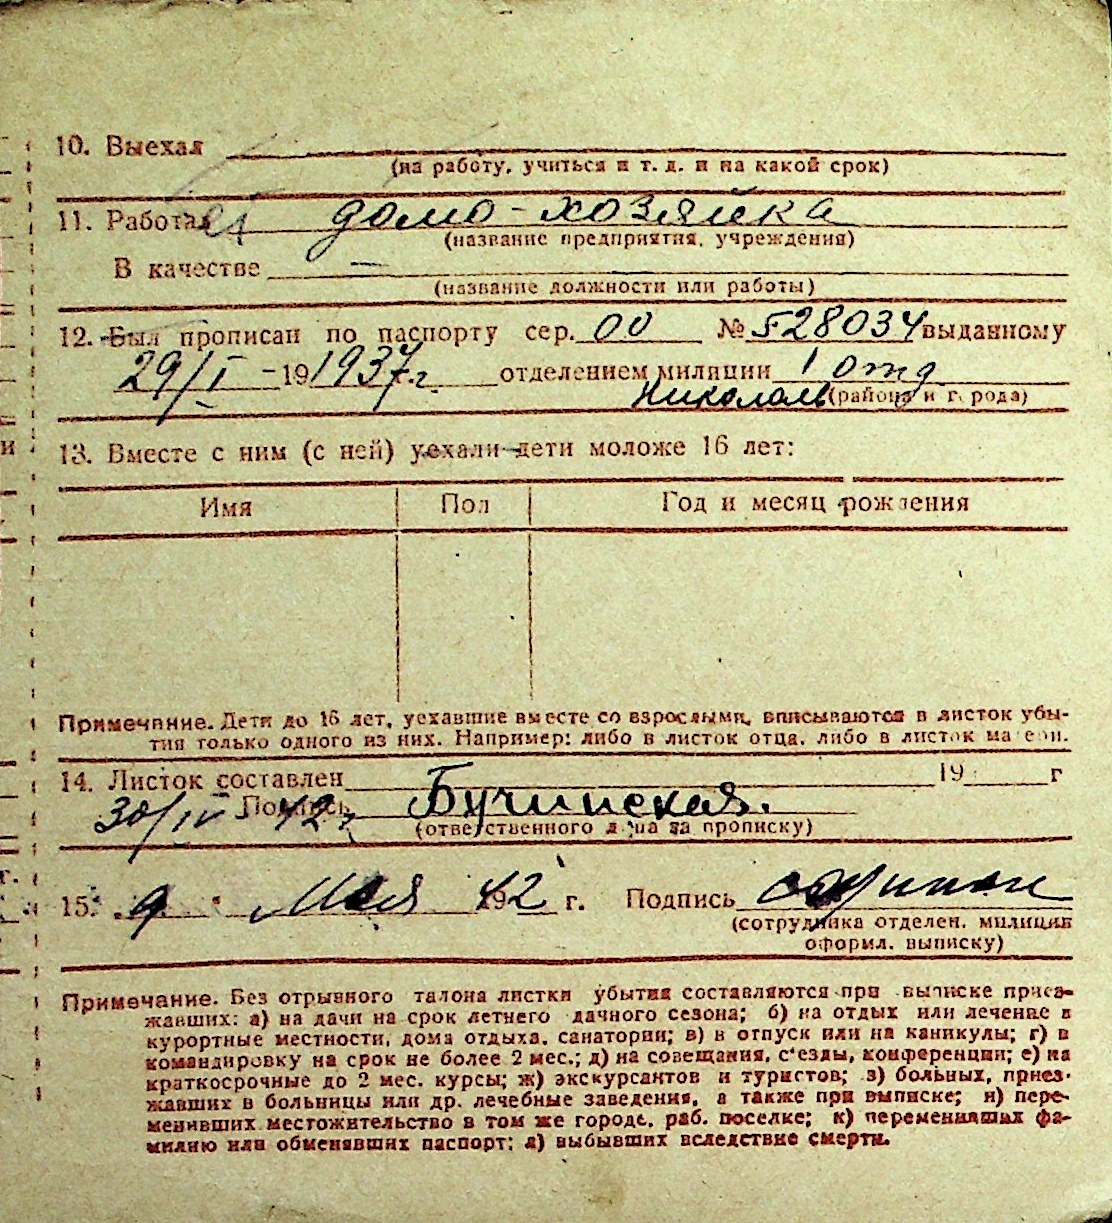 10. Выехал
(на работу, учиться и т. д. и на какой срок)
11. Работал домо-хозяйка
(название предприятия, учреждения)
В качестве —
(название должности или работы)
12. Был прописан по паспорту сер. 00 № 528034 выданному
29/I - 19 1937 г. отделением милиции 1 отд
Николаев (района и города)
13. Вместе с ним (с ней) уехали дети моложе 16 лет:
Имя Пол Год и месяц рождения
Примечание. Дети до 16 лет, уехавшие вместе со взрослыми, вписываются в листок убы-
тия только одного из них. Например: либо в листок отца, либо в листок матери.
14. Листок составлен 19 г
30/IV 42 г Подпись Бучинская.
(ответственного лица за прописку)
15. 9 Мая 1942 г. Подпись
(сотрудника отделен. милиции
оформл. выписку)
Примечание. Без отрывного талона листки убытия составляются при выписке приез-
жавших: а) на дачи на срок летнего дачного сезона; б) на отдых или лечение в
курортные местности, дома отдыха, санатории; в) в отпуск или на каникулы; г) в
командировку на срок не более 2 мес.; д) на совещания, с'езды, конференции; е) на
краткосрочные до 2 мес. курсы; ж) экскурсантов и туристов; з) больных, приез-
жавших в больницы или др. лечебные заведения, а также при выписке; и) пере-
менивших местожительство в том же городе, раб. поселке; к) переменивших фа-
милию или обменявших паспорт; л) выбывших вследствие смерти.